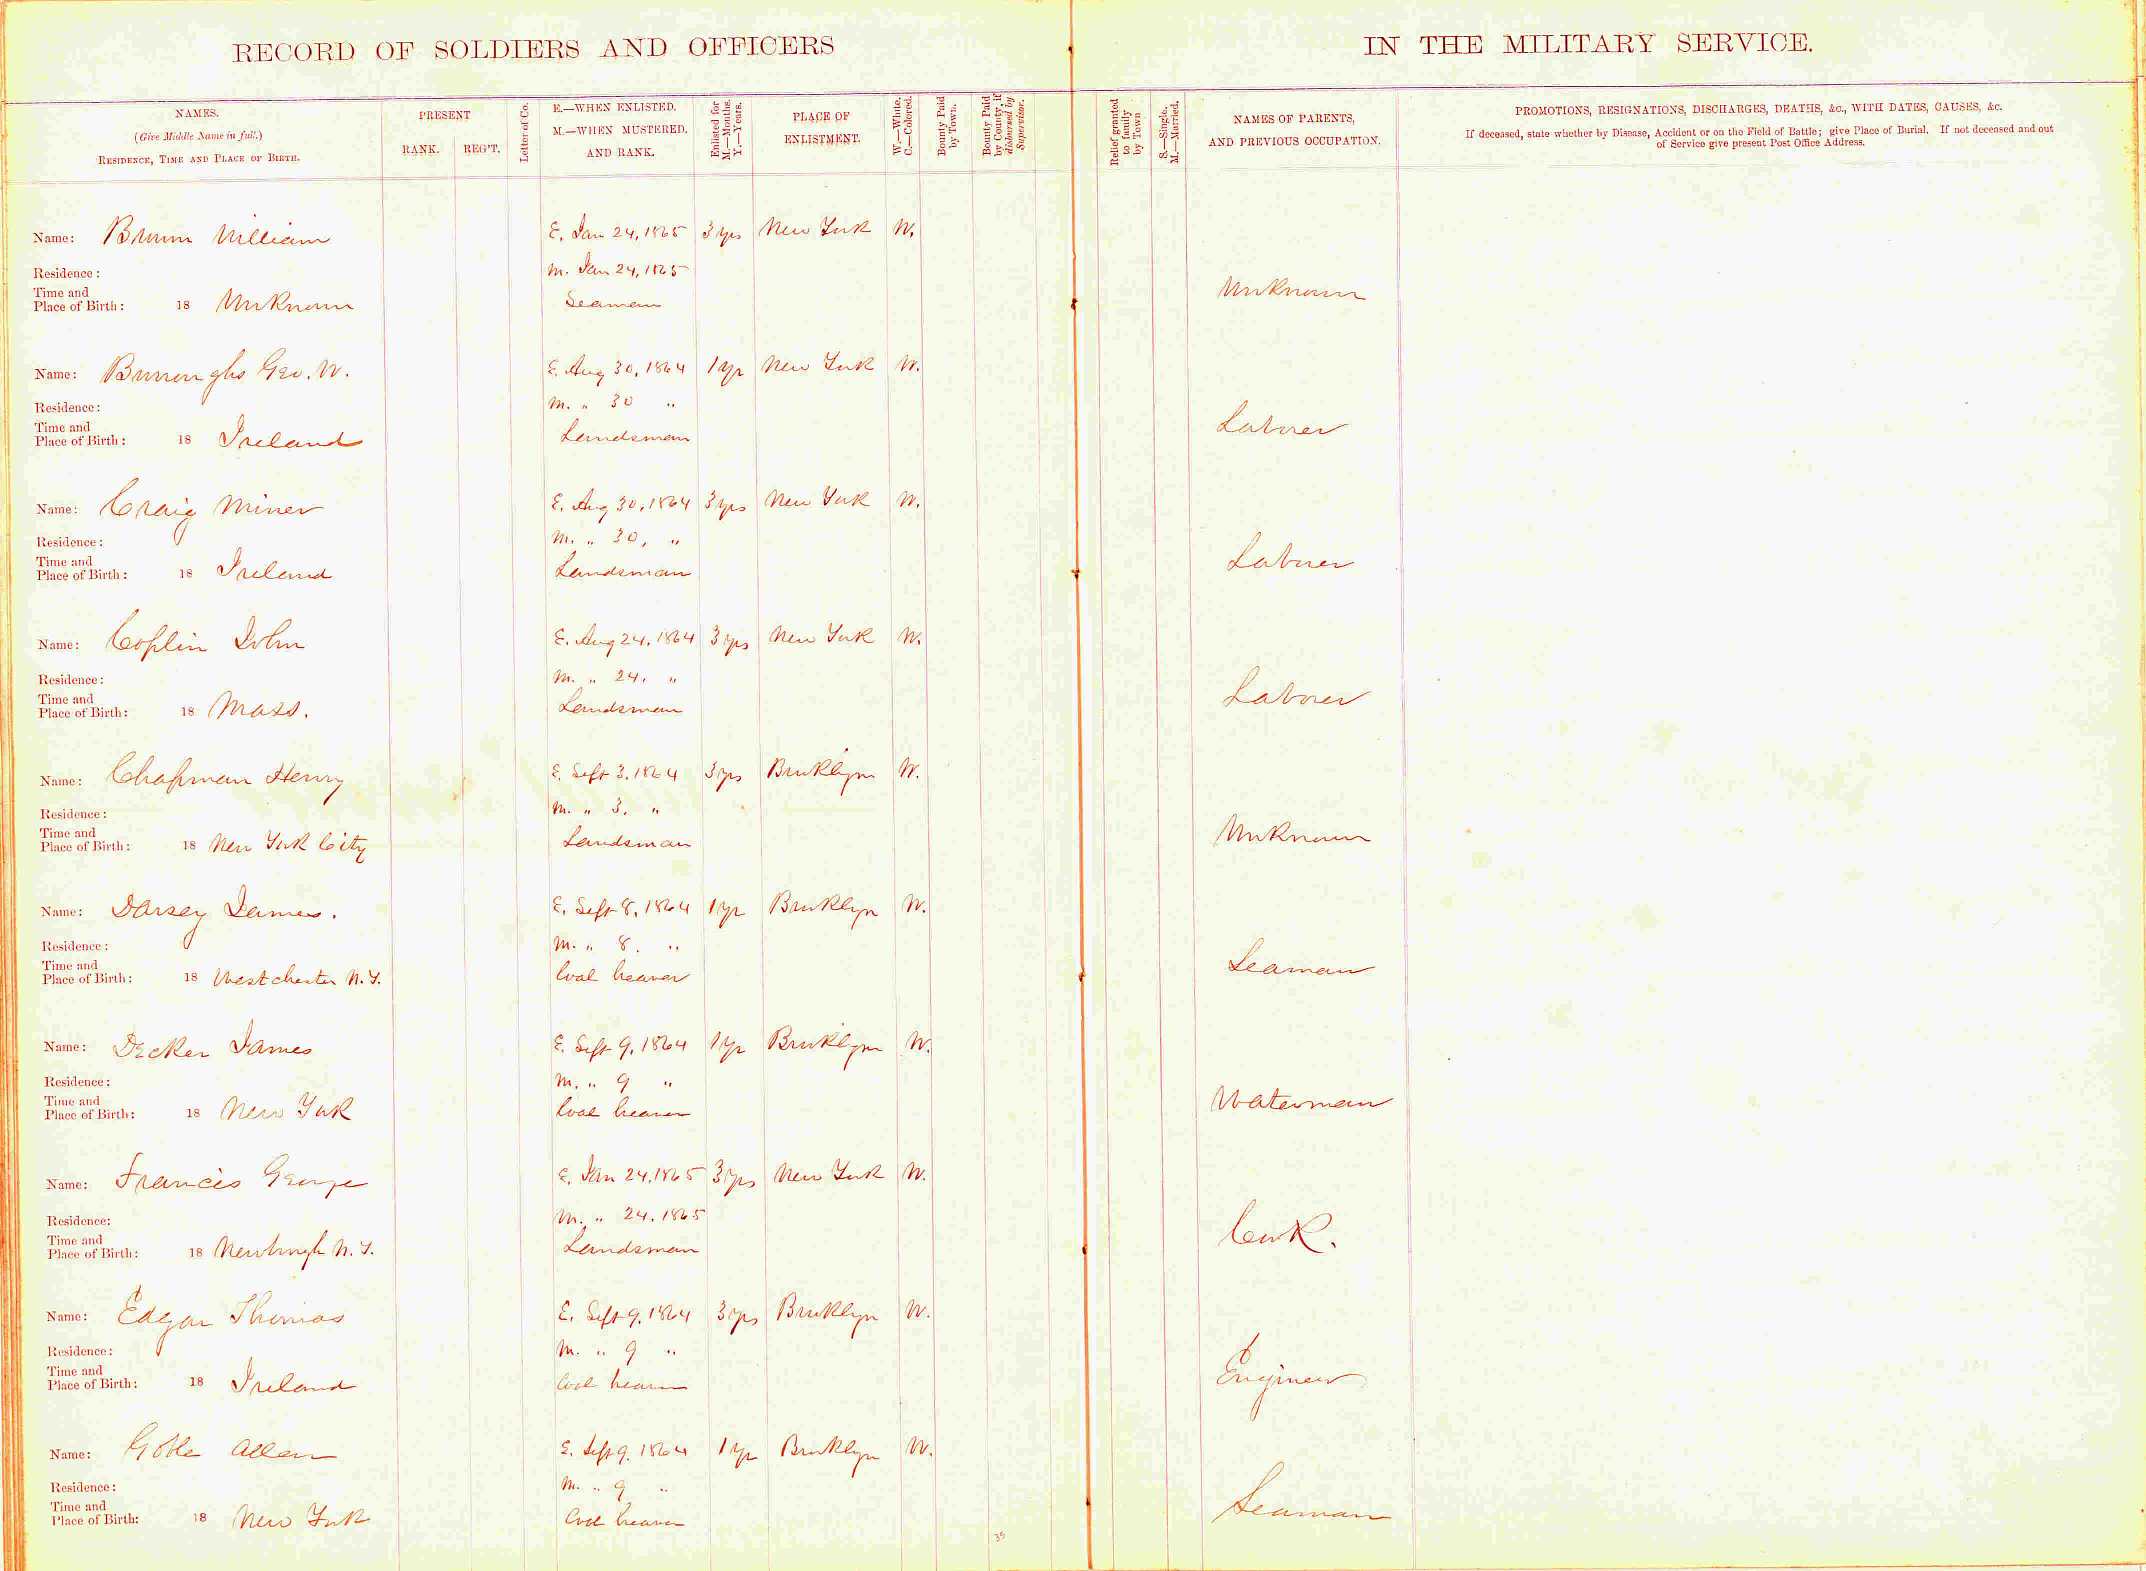 RECORD OF SOLDIERS AND OFFICERS IN THE MILITARY SERVICE.
NAMES.
(Give Middle Name in full.)
RESIDENCE, TIME AND PLACE OF BIRTH.
PRESENT
RANK. REG'T.
Letter of Co.
E.—WHEN ENLISTED.
M.—WHEN MUSTERED.
AND RANK.
Enlisted for
M.—Months.
Y.—Years.
PLACE OF
ENLISTMENT.
W.—White.
C.—Colored.
Bounty Paid
by Town.
Bounty Paid
by County, if
disbursed by
Supervisor.
Relief granted
to family
by Town
S.—Single.
M.—Married.
NAMES OF PARENTS,
AND PREVIOUS OCCUPATION.
PROMOTIONS, RESIGNATIONS, DISCHARGES, DEATHS, &c., WITH DATES, CAUSES, &c.
If deceased, state whether by Disease, Accident or on the Field of Battle; give Place of Burial. If not deceased and out
of Service give present Post Office Address.
Name: Brown William E. Jan 24, 1865 3 yrs New York W.
Residence: M. Jan 24, 1865
Time and
Place of Birth: 18 Unknown Seaman Unknown
Name: Burroughs Geo. W. E. Aug 30, 1864 1 yr New York W.
Residence: M. " 30 "
Time and
Place of Birth: 18 Ireland Landsman Laborer
Name: Craig Miner E. Aug 30, 1864 3 yrs New York W.
Residence: M. " 30, "
Time and
Place of Birth: 18 Ireland Landsman Laborer
Name: Coplin John E. Aug 24, 1864 3 yrs New York W.
Residence: M. " 24, "
Time and
Place of Birth: 18 Mass. Landsman Laborer
Name: Chapman Henry E. Sept 3, 1864 3 yrs Brooklyn W.
Residence: M. " 3, "
Time and
Place of Birth: 18 New York City Landsman Unknown
Name: Darsey James. E. Sept 8, 1864 1 yr Brooklyn W.
Residence: M. " 8. "
Time and
Place of Birth: 18 Westchester N.Y. Coal heaver Seaman
Name: Decker James E. Sept 9, 1864 1 yr Brooklyn W.
Residence: M. " 9 "
Time and
Place of Birth: 18 New York Coal heaver Waterman
Name: Francis George E. Jan 24, 1865 3 yrs New York W.
Residence: M. " 24, 1865
Time and
Place of Birth: 18 Newburgh N.Y. Landsman Cook.
Name: Edgar Thomas E. Sept 9, 1864 3 yrs Brooklyn W.
Residence: M. " 9 "
Time and
Place of Birth: 18 Ireland Coal heaver Engineer
Name: Goble Allen E. Sept 9, 1864 1 yr Brooklyn W.
Residence: M. " 9 "
Time and
Place of Birth: 18 New York Coal heaver Seaman
35